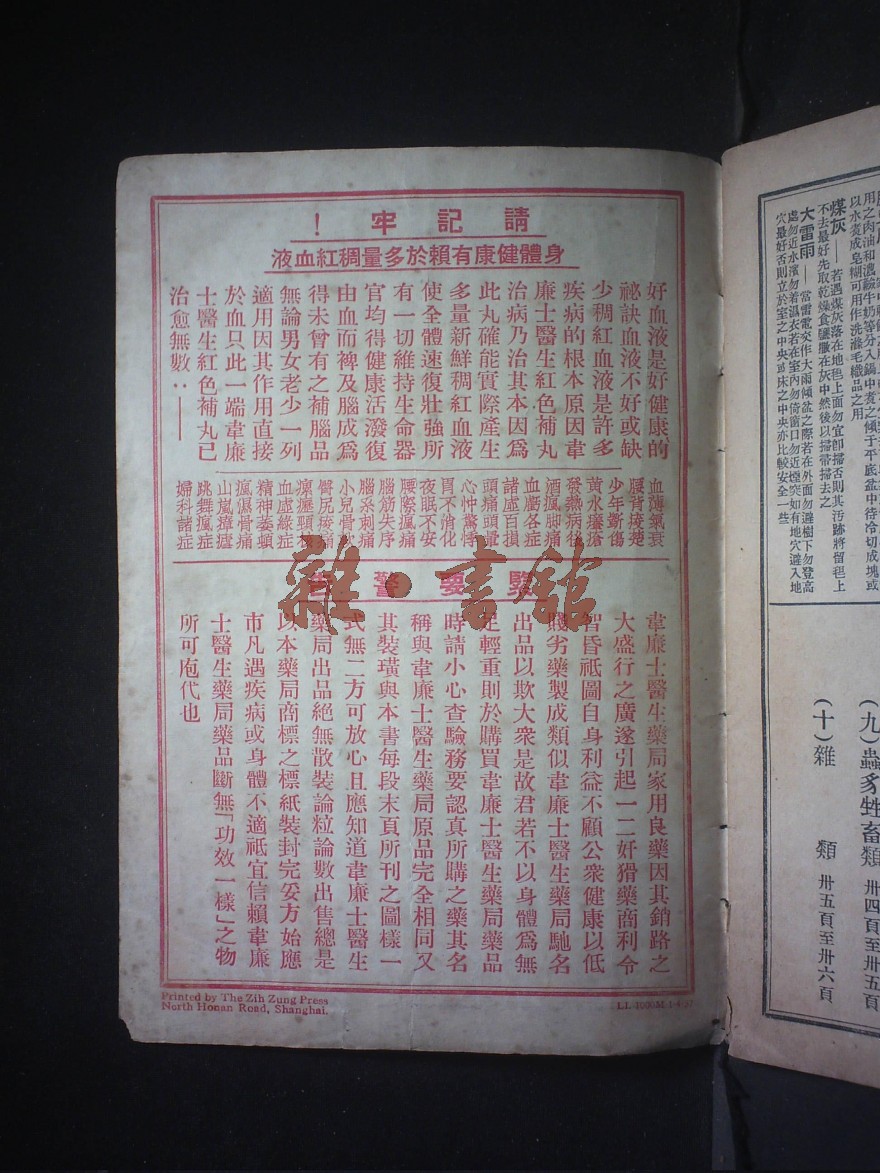 請記牢！
身體健康有賴於多量稠紅血液
好血液是好健康的
祕訣血液不好或缺
少稠紅血液是許多
疾病的根本原因韋
廉士醫生紅色補丸
治病乃治其本因為
此丸確能實際產生
多量新鮮稠紅血液
使全體速復壯強所
有一切維持生命器
官均得健康活潑復
由血而裨及腦成為
得未曾有之補腦品
無論男女老少一列
適用因其作用直接
於血只此一端韋廉
士醫生紅色補丸已
治愈無數：——
血薄氣衰
腰背痠楚
少年斲傷
黃水瘡
發熱病後
酒瘋脚痛
血虧各症
諸虛百損
頭痛頭暈
心忡驚悸
胃不消化
夜眠不安
腰際瘋痛
腦筋失序
腦系刺痛
小兒骨軟
臀尻痠痛
瘰癧
血虛綠症
精神萎頓
瘋濕骨痛
山嵐瘴瘧
跳舞瘋症
婦科諸症
緊要警告
韋廉士醫生藥局家用良藥因其銷路之
大盛行之廣遂引起一二奸猾藥商利令
智昏祇圖自身利益不顧公衆健康以低
賤劣藥製成類似韋廉士醫生藥局馳名
出品以欺大衆是故君若不以身體為無
足輕重則於購買韋廉士醫生藥局藥品
時請小心查驗務要認真所購之藥其名
稱與韋廉士醫生藥局原品完全相同又
其裝璜與本書每段末頁所刊之圖樣一
式無二方可放心且應知道韋廉士醫生
藥局出品絕無散裝論粒論數出售總是
以本藥局商標之標紙裝封完妥方始應
市凡遇疾病或身體不適祇宜信賴韋廉
士醫生藥局藥品斷無「功效一樣」之物
所可庖代也
Printed by The Zih Zung Press
North Honan Road, Shanghai.
雜·書館
用之肉油和濃鹼牛奶等分入鍋中煑之傾于平底盆中待冷切成塊或
以水煑成皂糊可用作洗滌毛織品之用
煤灰——若遇煤灰落在地毡上面勿宜卽掃否則其污跡將留毡上
不去最好先取乾燥食鹽灑在灰中然後以掃帚掃去之
大雷雨——當雷電交作大雨傾盆之際若在外面勿避樹下勿登高
處勿近水濱勿着濕衣若在室內勿倚窗口勿近煙突如有地穴避入地
穴最好否則立於室之中央或床之中央亦比較安全一些
(九)蟲豸牲畜類 卅四頁至卅五頁
(十)雜類 卅五頁至卅六頁